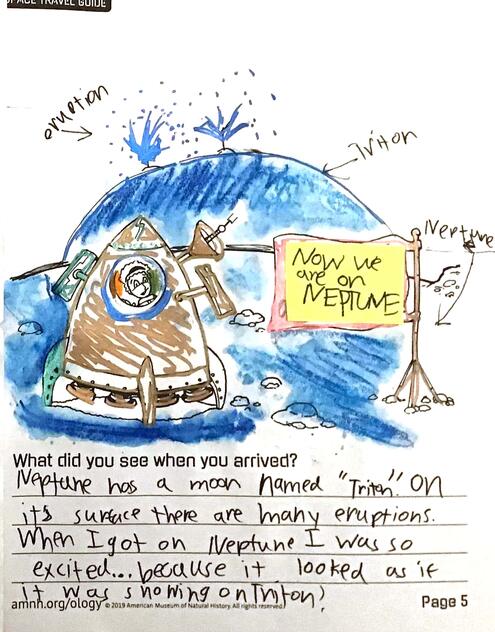 SPACE TRAVEL GUIDE
eruption
Triton
Neptune
NOW we
are on
NEPTUNE
What did you see when you arrived?
Neptune has a moon named "Triton". On
it's surface there are many eruptions.
When I got on Neptune I was so
excited... because it looked as if
it was snowing on Triton!
amnh.org/ology © 2019 American Museum of Natural History. All rights reserved.
Page 5